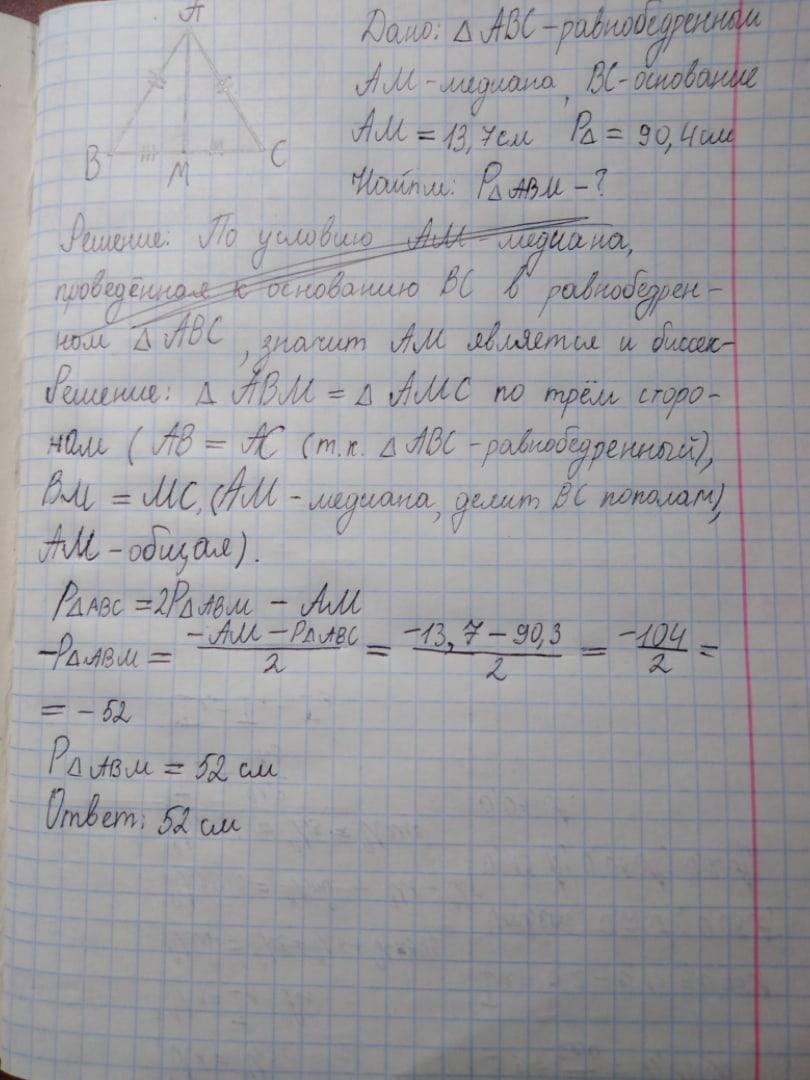 A
B
M
C
Дано: △ ABC - равнобедренный
AM - медиана, BC - основание
AM = 13,7 см P△ = 90,4 см
Найти: P△ABM - ?
Решение: По условию AM - медиана,
проведённая к основанию BC в равнобедрен-
ном △ ABC, значит AM является и биссек-
Решение: △ ABM = △ AMC по трём сторо-
нам ( AB = AC (т.к. △ ABC - равнобедренный),
BM = MC, (AM - медиана, делит BC пополам),
AM - общая).
P△ABC = 2P△ABM - AM
-P△ABM = (-AM - P△ABC)/2 = (-13,7 - 90,3)/2 = -104/2 =
= - 52
P△ABM = 52 см
Ответ: 52 см